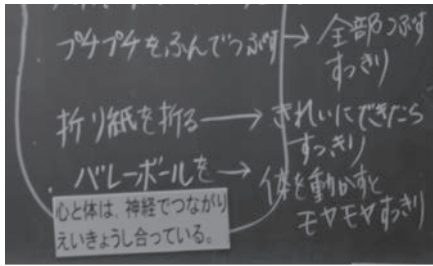 プチプチをふんでつぶす→全部つぶす
すっきり
折り紙を折る→きれいにできたら
すっきり
・バレーボールを→体を動かすと
モヤモヤすっきり
心と体は、神経でつながり
えいきょうし合っている。